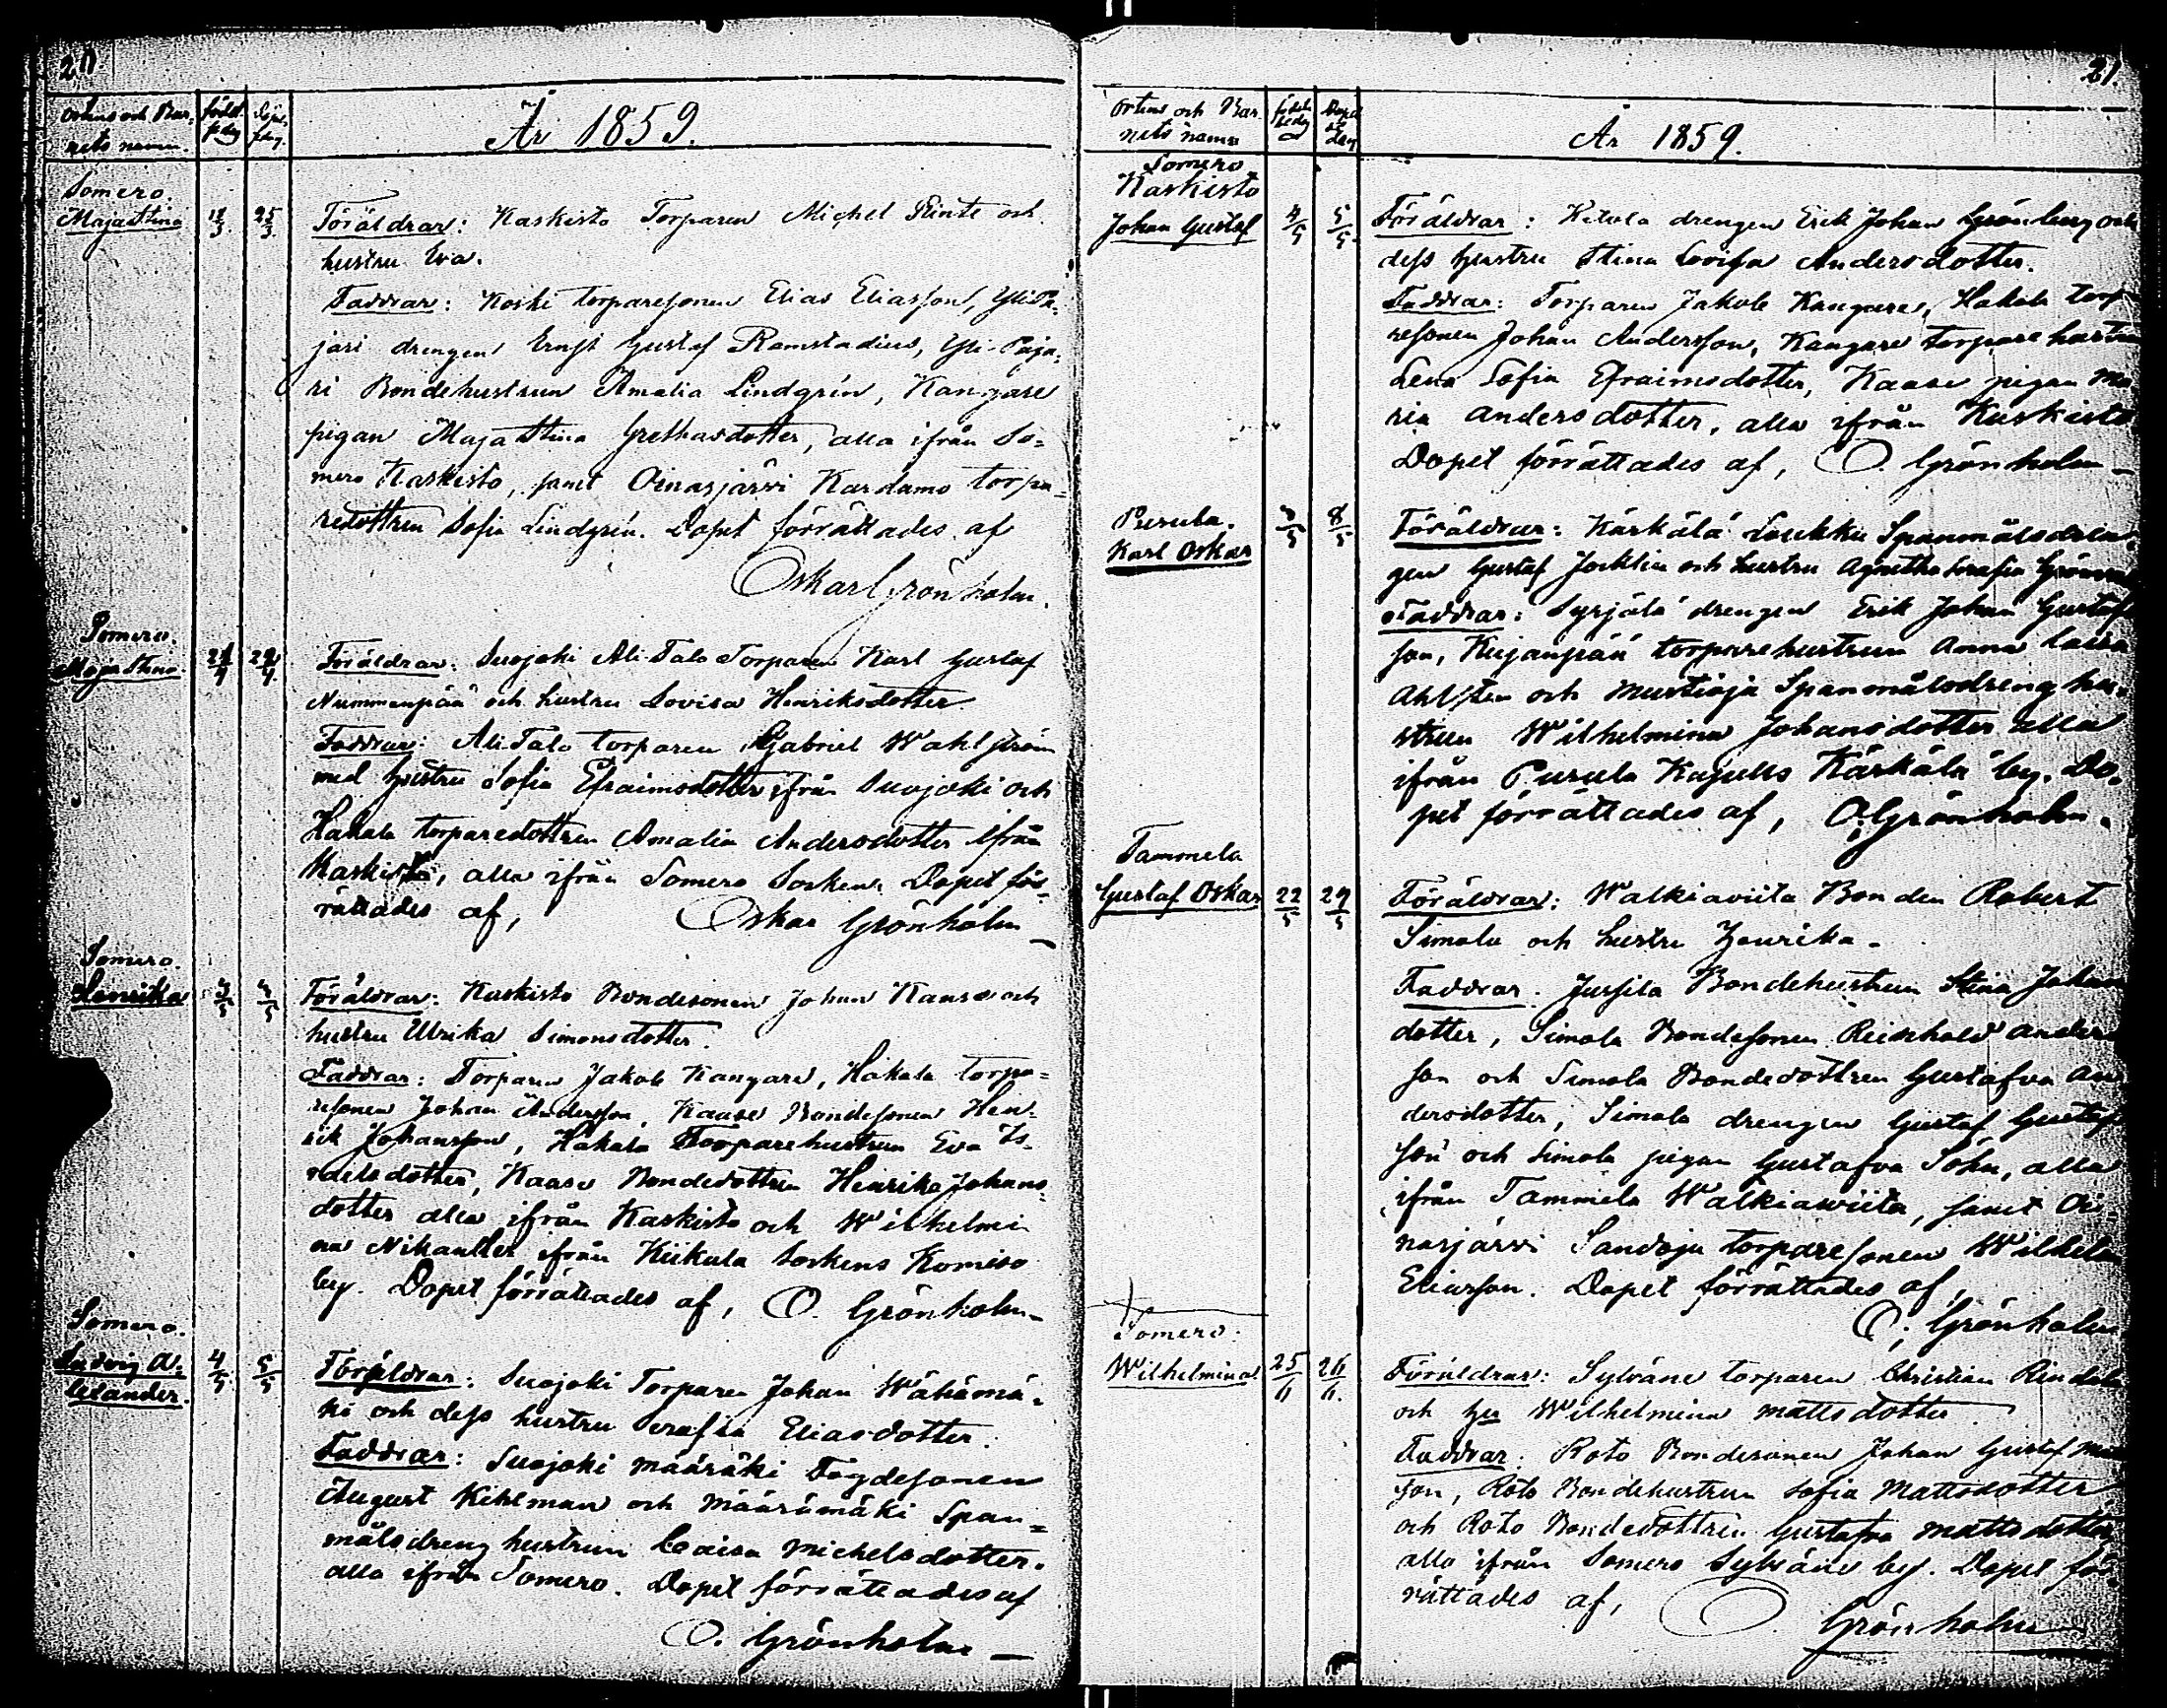 20.
Ortens och Bar-
nets namn.
född.
sdag
Döpel
sdag.
År 1859.
Somero.
Maja Stina
18/3.
25/3.
Föräldrar: Kaskisto Torparen Michel Rinte och
hustru Eva.
Faddrar: Koski torparesonen Elias Eliasson, Yli-Pa-
jari drengen Ernst Gustaf Ramstadius, Yli-Paja-
ri Bondehustrun Amalia Lindgrén, Kangare
pigan Maja Stina Grelsasdotter, alla ifrån So-
mero Kaskisto, samt Oinasjärvi Kardamo torpa-
redottren Sofia Lindgrén. Dopet förrättades af
Oskar Grönholm.
Somero.
Maja Stina
29/4.
Föräldrar: Suojoki Ali-Talo Torparen Karl Gustaf
Nummenpää och hustru Lovisa Henriksdotter
Faddrar: Ali Talo torparen Gabriel Wahlström
med hustru Sofia Efraimsdotter ifrån Suojoki och
Hakala torparedottren Amalia Andersdotter ifrån
Kaskisto, alla ifrån Somero Socken. Dopet för-
rättades af,
Oskar Grönholm
Somero.
Henrika
Föräldrar: Kaskisto Bondesonen Johan Kaase och
hustru Ulrika Simonsdotter.
Faddrar: Torparen Jakob Kangare, Hakala torpa-
resonen Johan Andersson, Kaase Bondesonen Hen-
rik Johansson, Hakala Torparehustrun Eva Is-
raelsdotter, Kaase Bondedottren Henrika Johans-
dotter alla ifrån Kaskisto och Wilhelmi-
na Nikander ifrån Kiikala Sockens Komiso
by. Dopet förrättades af, O. Grönholm
Somero.
Ludvig A-
lexander.
4/5.
5/5
Föräldrar: Suojoki Torparen Johan Wähämä-
ki och dess hustru Serafia Eliasdotter.
Faddrar: Suojoki määräki Fogdesonen
August Kihlman och Määrämäki Span-
målsdreng hustrun Caisa Michelsdotter.
alla ifrån Somero. Dopet förrättades af
O. Grönholm
21.
Ortens och Bar-
nets namn
födel
sedag
Dopel
se
dag
År 1859.
Somero
Kaskisto
Johan Gustaf
4/5
5/5.
Föräldrar: Ketola drengen Erik Johan Grönberg och
dess hustru Stina Lovisa Andersdotter.
Faddrar: Torparen Jakob Kangare, Hakala torpa-
resonen Johan Andersson, Kangare torparehustrun
Lena Sofia Efraimsdotter, Kaase pigan Ma-
ria Andersdotter, alla ifrån Kaskisto
Dopet förrättades af, O. Grönholm
Pusula.
Karl Oskar
8/5
Föräldrar: Kärkälä Loukku Spanmålsdren-
gen Gustaf Jocklin och hustru Agnetha Serafia
Faddrar: Syrjälä drengen Erik Johan Gustaf-
son, Kujanpää torparehustrun Anna Caisa
Ahlsten och Mustioja Spanmålsdreng hu-
strun Wilhelmina Johansdotter alla
ifrån Pusula Kapells Kärkälä by. Do-
pet förrättades af, O. Grönholm.
Tammela
Gustaf Oskar
22/5
29/5
Föräldrar: Walkiaviita Bonden Robert
Simola och hustru Henrika
Faddrar: Jussila Bondehustrun Stina Johans
dotter, Simola Bondesonen Reinhold Anders
son och Simola Bondedottren Gustafva An
dersdotter, Simola drengen Gustaf Gustaf
son och Simola pigan Gustafva Sohn, alla
ifrån Tammela Walkiawiita, samt Oi-
nasjärvi Sandoja torparesonen Wilhelm
Eliasson. Dopet förrättades af,
O. Grönholm
Somero.
Wilhelmina
25/6
26/6.
Föräldrar: Sylväne torparen Christian Rindala
och hu Wilhelmina Mattsdotter.
Faddrar: Roto Bondesonen Johan Gustaf Matts
son, Roto Bondehustrun Sofia Mattsdotter
och Roto Bondedottren Gustafva Mattsdotter
alla ifrån Somero Sylväne by. Dopet för-
rättades af, O Grönholm